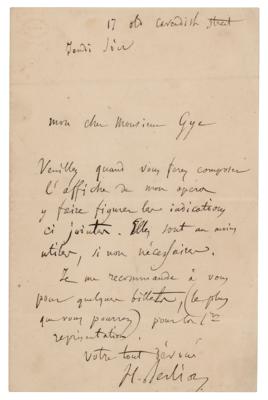 17 old Cavendish street
Jeudi Soir
mon cher Monsieur Gye
Veuillez quand vous ferez composer
l'affiche de mon opera
y faire figurer les indications
ci jointes. Elles sont au moins
utiles, si non nécessaires.
Je me recommande à vous
pour quelques billets, (le plus
que vous pourrez) pour la 1re
représentation.
Votre tout dévoué
H. Berlioz